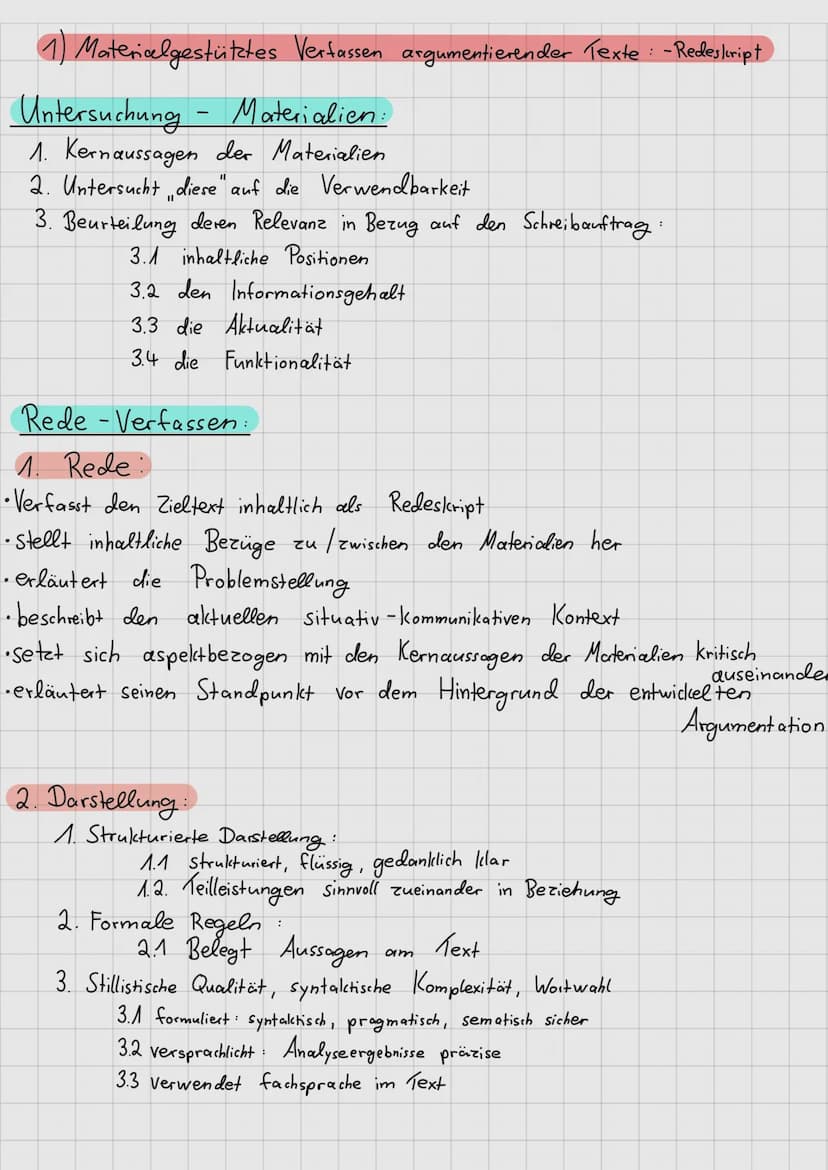 1) Materialgestütztes Verfassen argumentierender Texte : - Redeskript
Untersuchung - Materialien:
1. Kernaussagen der Materialien
2. Untersucht „diese" auf die Verwendbarkeit
3. Beurteilung deren Relevanz in Bezug auf den Schreibauftrag :
3.1 inhaltliche Positionen
3.2 den Informationsgehalt
3.3 die Aktualität
3.4 die Funktionalität
Rede - Verfassen:
1. Rede:
• Verfasst den Zieltext inhaltlich als Redeskript
• stellt inhaltliche Bezüge zu / zwischen den Materialien her
• erläutert die Problemstellung
• beschreibt den aktuellen situativ - kommunikativen Kontext
• setzt sich aspektbezogen mit den Kernaussagen der Materialien kritisch
auseinander
• erläutert seinen Standpunkt vor dem Hintergrund der entwickelten
Argumentation
2. Darstellung:
1. Strukturierte Darstellung :
1.1 strukturiert, flüssig, gedanklich klar
1.2. Teilleistungen sinnvoll zueinander in Beziehung
2. Formale Regeln :
2.1 Belegt Aussagen am Text
3. Stillistische Qualität, syntaktische Komplexität, Wortwahl
3.1 formuliert : syntaktisch, pragmatisch, sematisch sicher
3.2 versprachlicht : Analyseergebnisse präzise
3.3 verwendet fachsprache im Text